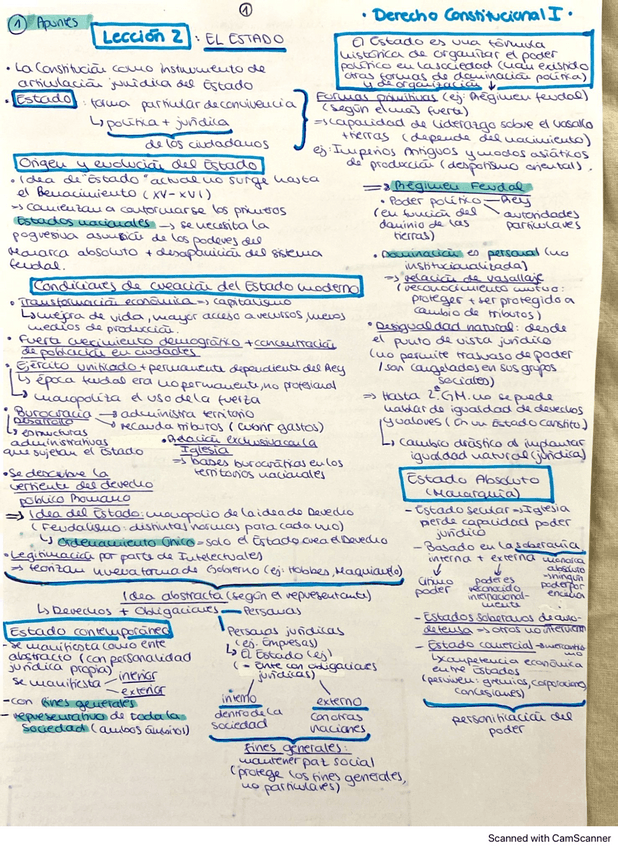 1 Apuntes
1
· Derecho Constitucional I ·
Lección 2 : EL ESTADO
· La Constitución como instrumento de
articulación jurídica del Estado
· Estado : forma particular de convivencia
↳ política + jurídica
de los ciudadanos
El Estado es una fórmula
histórica de organizar el poder
político en la sociedad (han existido
otras formas de dominación política)
y de organización
Formas primitivas (ej: Régimen feudal)
(según el más fuerte)
⇒ capacidad de liderazgo sobre el vasallo
+ tierras (depende del nacimiento)
ej: Imperios Antiguos y modos asiáticos
de producción (despotismo oriental).
Origen y evolución del Estado
· Idea de "Estado" actual no surge hasta
el Renacimiento (XV-XVI)
→ comienzan a conformarse los primeros
Estados nacionales → se necesita la
pogresiva asunción de los poderes del
Monarca absoluto + desaparición del sistema
feudal.
Condiciones de creación del Estado moderno
· Transformación económica → capitalismo
↳ mejora de vida, mayor acceso a recursos, nuevos
medios de producción.
· Fuerte crecimiento demográfico + concentración
de población en ciudades
· Ejército unificado + permanente dependiente del Rey
↳ época feudal era no permanente, no profesional
↳ monopoliza el uso de la fuerza
· Burocracia → administra territorio
→ recauda tributos (cubrir gastos)
desarrollo
↳ estructuras
administrativas
que sujetan el Estado
· Relación exclusiva con la
Iglesia
⇒ bases burocráticas en los
territorios nacionales
· Se descubre la
vertiente del derecho
público Romano
⇒ Idea del Estado: monopolio de la idea de Derecho
(Feudalismo: distintas normas para cada uno)
↳ Ordenamiento Único = solo el Estado crea el Derecho
· Legitimación por parte de Intelectuales
⇒ teorizan nueva forma de Gobierno (ej: Hobbes, Maquiavelo)
⇒ Régimen Feudal
· Poder político — Rey
(en función del
dominio de las
tierras)
autoridades
particulares
· Dominación es personal (no
institucionalizada)
⇒ relación de vasallaje
(reconocimiento mutuo:
proteger + ser protegido a
cambio de tributos)
· Desigualdad natural: desde
el punto de vista jurídico
(no permite trasvaso de poder
/son congelados en sus grupos
sociales)
⇒ Hasta 2ª G.M. no se puede
hablar de igualdad de derechos
y valores (en un Estado constito)
↳ cambio drástico al implantar
igualdad natural (jurídica)
Estado Absoluto
(Monarquía)
- Estado secular → Iglesia
pierde capacidad poder
jurídico
- Basado en la soberanía
interna + externa
único
poder
poder es
reconocido
internacional-
mente
monarca
absoluto
→ ningún
poder por
encima
- Estados soberanos de auto-
defensa → otros no intervienen
- Estado comercial →
↳ competencia económica
entre Estados
(perviven: gremios, corporaciones,
concesiones)
personificación del
poder
Idea abstracta (según el representante)
↳ Derechos + Obligaciones — Personas
Personas jurídicas
(ej: empresas)
↳ El Estado (ej)
(- Ente con obligaciones
jurídicas)
interno
dentro de la
sociedad
externo
con otras
naciones
fines generales:
mantener paz social
(protege los fines generales,
no particulares)
Estado contemporáneo
- se manifiesta como ente
abstracto (con personalidad
jurídica propia)
se manifiesta — interior
exterior
- con fines generales
- representativo de toda la
sociedad (ambos ámbitos)
Scanned with CamScanner